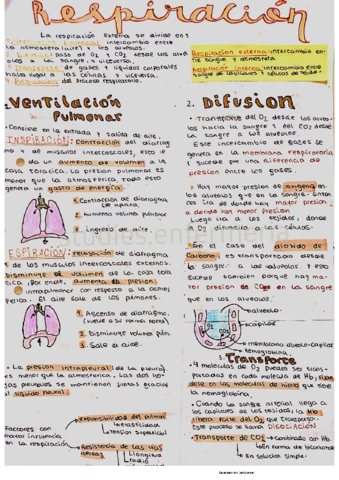 Respiración
La respiración externa se divide en:
intercambio entre
la atmosfera (aire) y los alveolos.
paso de O2 y CO2 desde los
a la sangre, y viceversa.
de gases y líquidos corporales
hasta llegar a las células y viceversa.
del proceso respiratorio.
Respiracion externa: intercambio en-
tre sangre y atmosfera.
Respiración Interna: intercambio entre
sangre de capilares y células de tejido.
1. Ventilación
Pulmonar
• Consiste en la entrada y salida de aire.
INSPIRACIÓN: Contracción del diafrag
ma y de músculos intercostales, esto
da un aumento de volumen a la
caja torácica. La presion pulmonar es
menor que la atmosferica. Todo esto
genera un gasto de energía.
1. Contracción de diafragma
2. Aumento volumen pulmonar
3. Ingreso de aire.
ESPIRACIÓN: relajación de diafragma
y de los músculos intercostales externos.
Disminuye el volumen de la caja torá
cica, por ende, aumenta la presion
intrapulmonar con respecto a la atmos-
ferica. El aire sale de los pulmones.
1. Ascenso de diafragma.
2. Disminuye volumen pulm.
3. Sale el aire.
• La presion intrapleural de la pleura,
es menor que la atmosferica. Las dos ho-
jas pleurales se mantienen juntas gracias
al líquido
Factores con
mayor influencia
en la respiración
Expansibilidad del pulmón
elasticidad
tension superficial
Resistencia de las vías
aéreas
longitud
radio
2. Difusion
• Transporte del O2 desde los alveo-
los hacia la sangre y del CO2 desde
la sangre a los alveolos.
Este intercambio de gases se
genera en la membrana respiratoria
y sucede por una diferencia de
presion entre los gases.
Hay mayor presion de oxigeno en
los alveolos que en la sangre. Enton
ces ira de donde hay mayor presion
a donde hay menor presion.
Luego ira a los tejidos, donde
O2 dinamiza las células.
• En el caso del dioxido de
Carbono, es transportado desde
la sangre a los alveolos. Y esto
sucede tambien porque hay ma-
yor presion de CO2 en la sangre
que en los alveolos.
O2
CO2
alveolo
capilar
membrana alveolo-capilar
hemoglobina
3. Transporte
• 4 moléculas de O2 pueden ser trans-
portadas en cada molécula de Hb,
dose en las moléculas de hierro que tiene
la hemoglobina.
• Cuando la sangre arterial llega a
los capilares de los tejidos, la Hb
libera parte del O2 que transporta.
Este proceso se llama DISOCIACIÓN
• Transporte de CO2
Combinado con Hb
En forma de bicarbonato
En solucion simple.